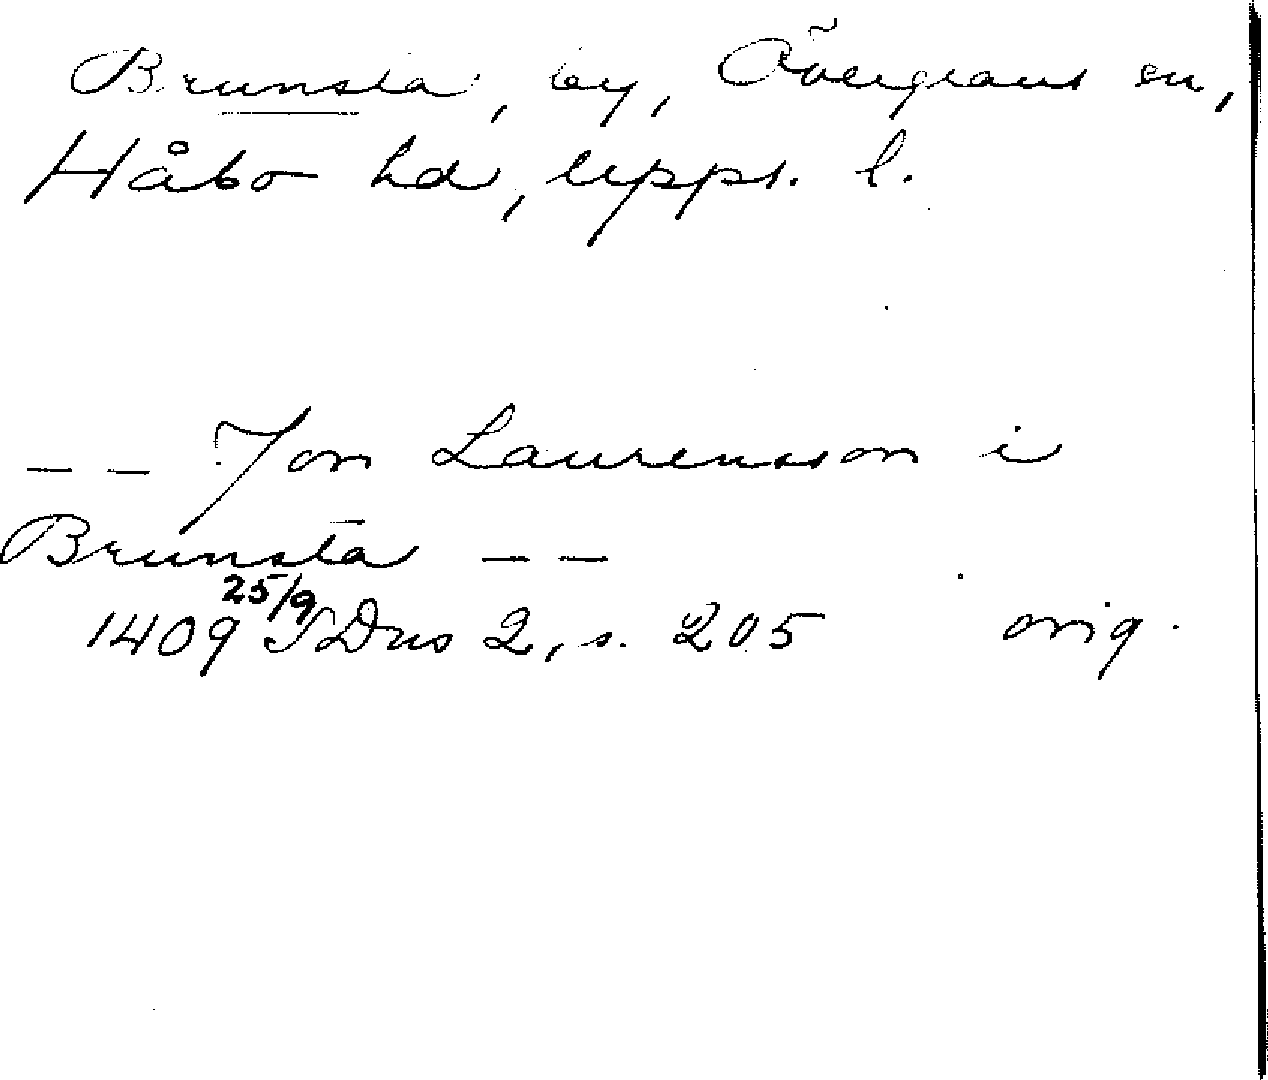 Brunsta, by, Övergrans sn,
Håbo hd, Upps. l.
— — Jon Laurensson i
Brunsta — —
1409 25/9 SDns 2, s. 205 orig.